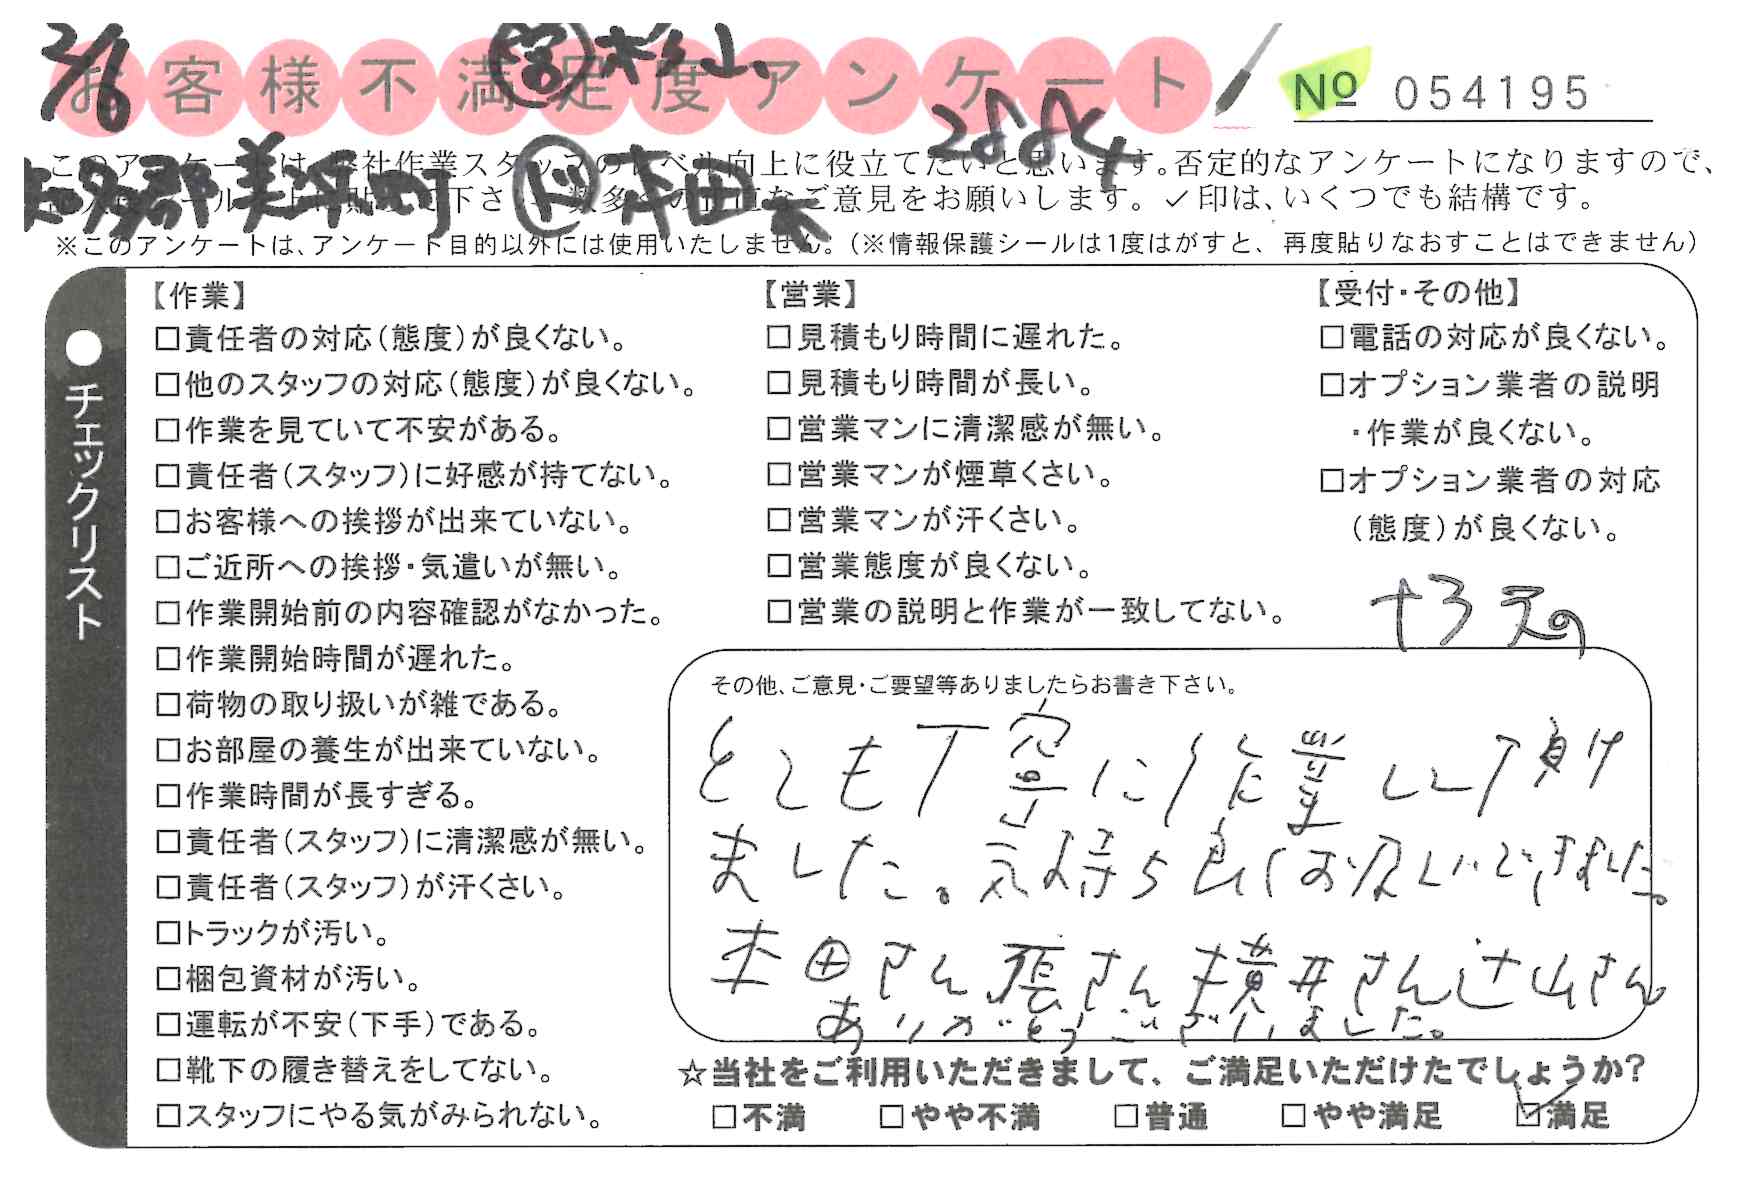 2/6 ㊂杉山
お客様不満足度アンケート
№ 054195
このアンケートは、弊社作業スタッフのレベル向上に役立てたいと思います。否定的なアンケートになりますので、
知多郡美浜町 ド 本田
下さい。数多くの正直なご意見をお願いします。✓印は、いくつでも結構です。
※このアンケートは、アンケート目的以外には使用いたしません。(※情報保護シールは1度はがすと、再度貼りなおすことはできません)
●チェックリスト
【作業】
□責任者の対応(態度)が良くない。
□他のスタッフの対応(態度)が良くない。
□作業を見ていて不安がある。
□責任者(スタッフ)に好感が持てない。
□お客様への挨拶が出来ていない。
□ご近所への挨拶・気遣いが無い。
□作業開始前の内容確認がなかった。
□作業開始時間が遅れた。
□荷物の取り扱いが雑である。
□お部屋の養生が出来ていない。
□作業時間が長すぎる。
□責任者(スタッフ)に清潔感が無い。
□責任者(スタッフ)が汗くさい。
□トラックが汚い。
□梱包資材が汚い。
□運転が不安(下手)である。
□靴下の履き替えをしてない。
□スタッフにやる気がみられない。
【営業】
□見積もり時間に遅れた。
□見積もり時間が長い。
□営業マンに清潔感が無い。
□営業マンが煙草くさい。
□営業マンが汗くさい。
□営業態度が良くない。
□営業の説明と作業が一致してない。
【受付・その他】
□電話の対応が良くない。
□オプション業者の説明
・作業が良くない。
□オプション業者の対応
(態度)が良くない。
その他、ご意見・ご要望等ありましたらお書き下さい。
とても丁寧に作業して頂け
ました。気持ち良くお願いできました。
本田さん 張さん 横井さん 辻山さん
ありがとうございました。
☆当社をご利用いただきまして、ご満足いただけたでしょうか?
□不満 □やや不満 □普通 □やや満足 ☑満足